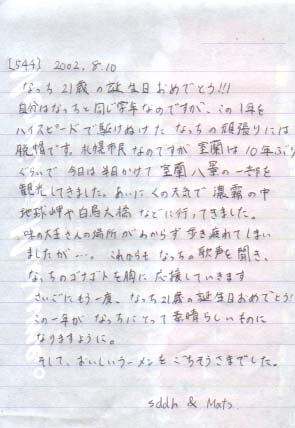 [544] 2002.8.10
なっち21歳の誕生日おめでとう!!!
自分はなっちと同じ学年なのですが、この1年を
ハイスピードで駆けぬけたなっちの頑張りには
脱帽です。札幌市民なのですが室蘭は10年ぶり
ぐらいで今日は半日かけて室蘭八景の一部を
観光してきました。あいにくの天気で濃霧の中
地球岬や白鳥大橋などに行ってきました。
味の大王さんの場所がわからず歩き疲れてしまい
ましたが…。これからもなっちの歌声を聞き、
なっちのゴナゴトを胸に応援していきます
さいごにもう一度、なっち21歳の誕生日おめでとう!
この一年がなっちにとって素晴らしいものに
なりますように。
そして、おいしいラーメンをごちそうさまでした。
sddh & Mats